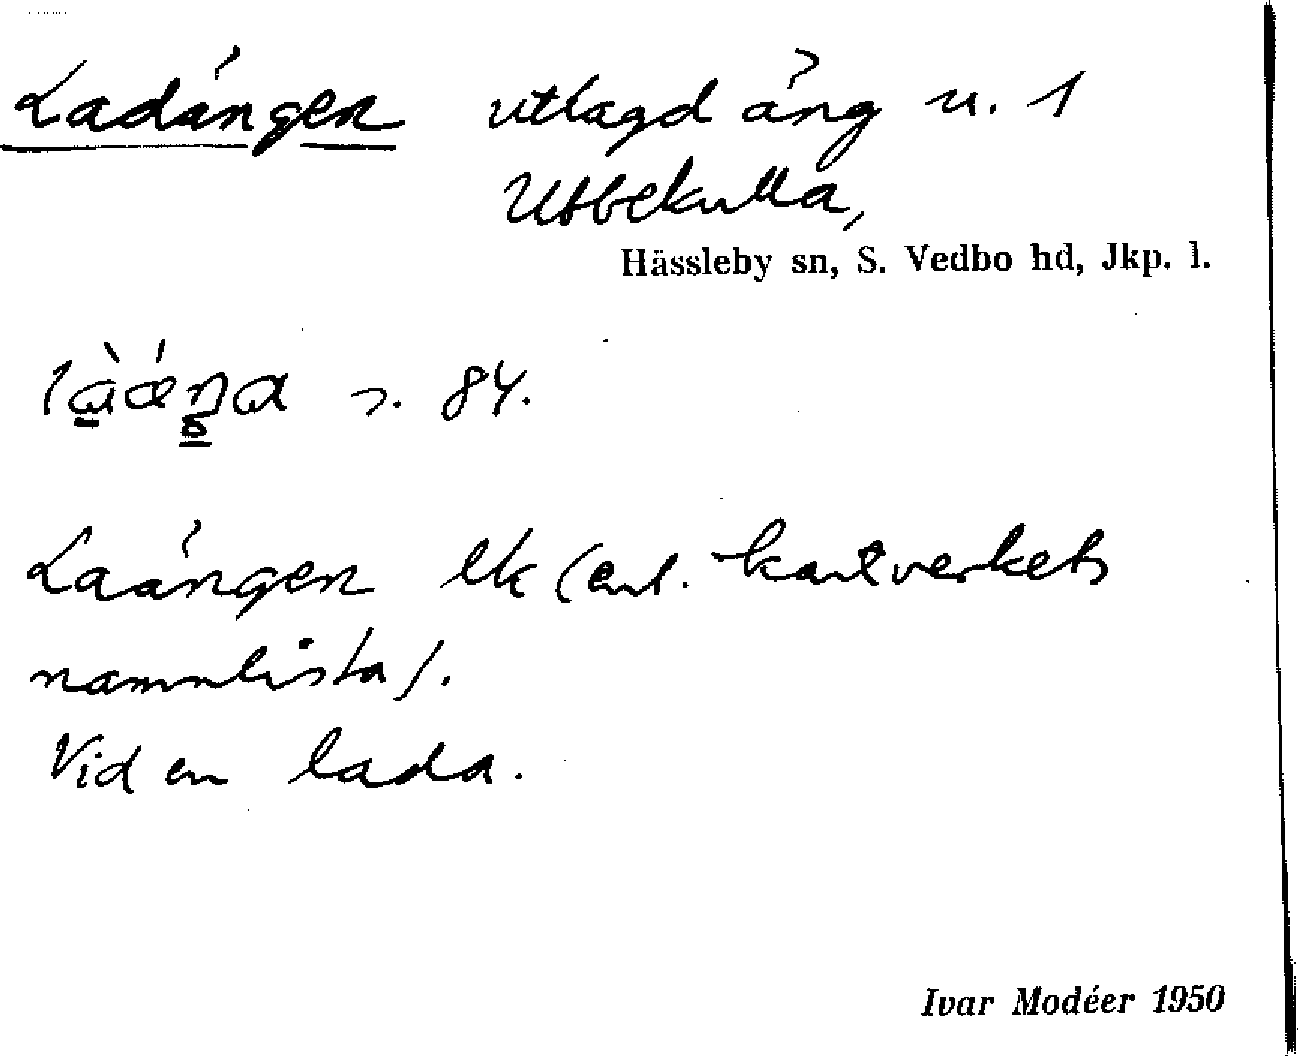 Ladängen utlagd äng u. 1
Utbekulla,
Hässleby sn, S. Vedbo hd, Jkp. l.
s. 84.
Laängen Uk (enl. kartverkets
namnlista).
Vid en lada.
Ivar Modéer 1950